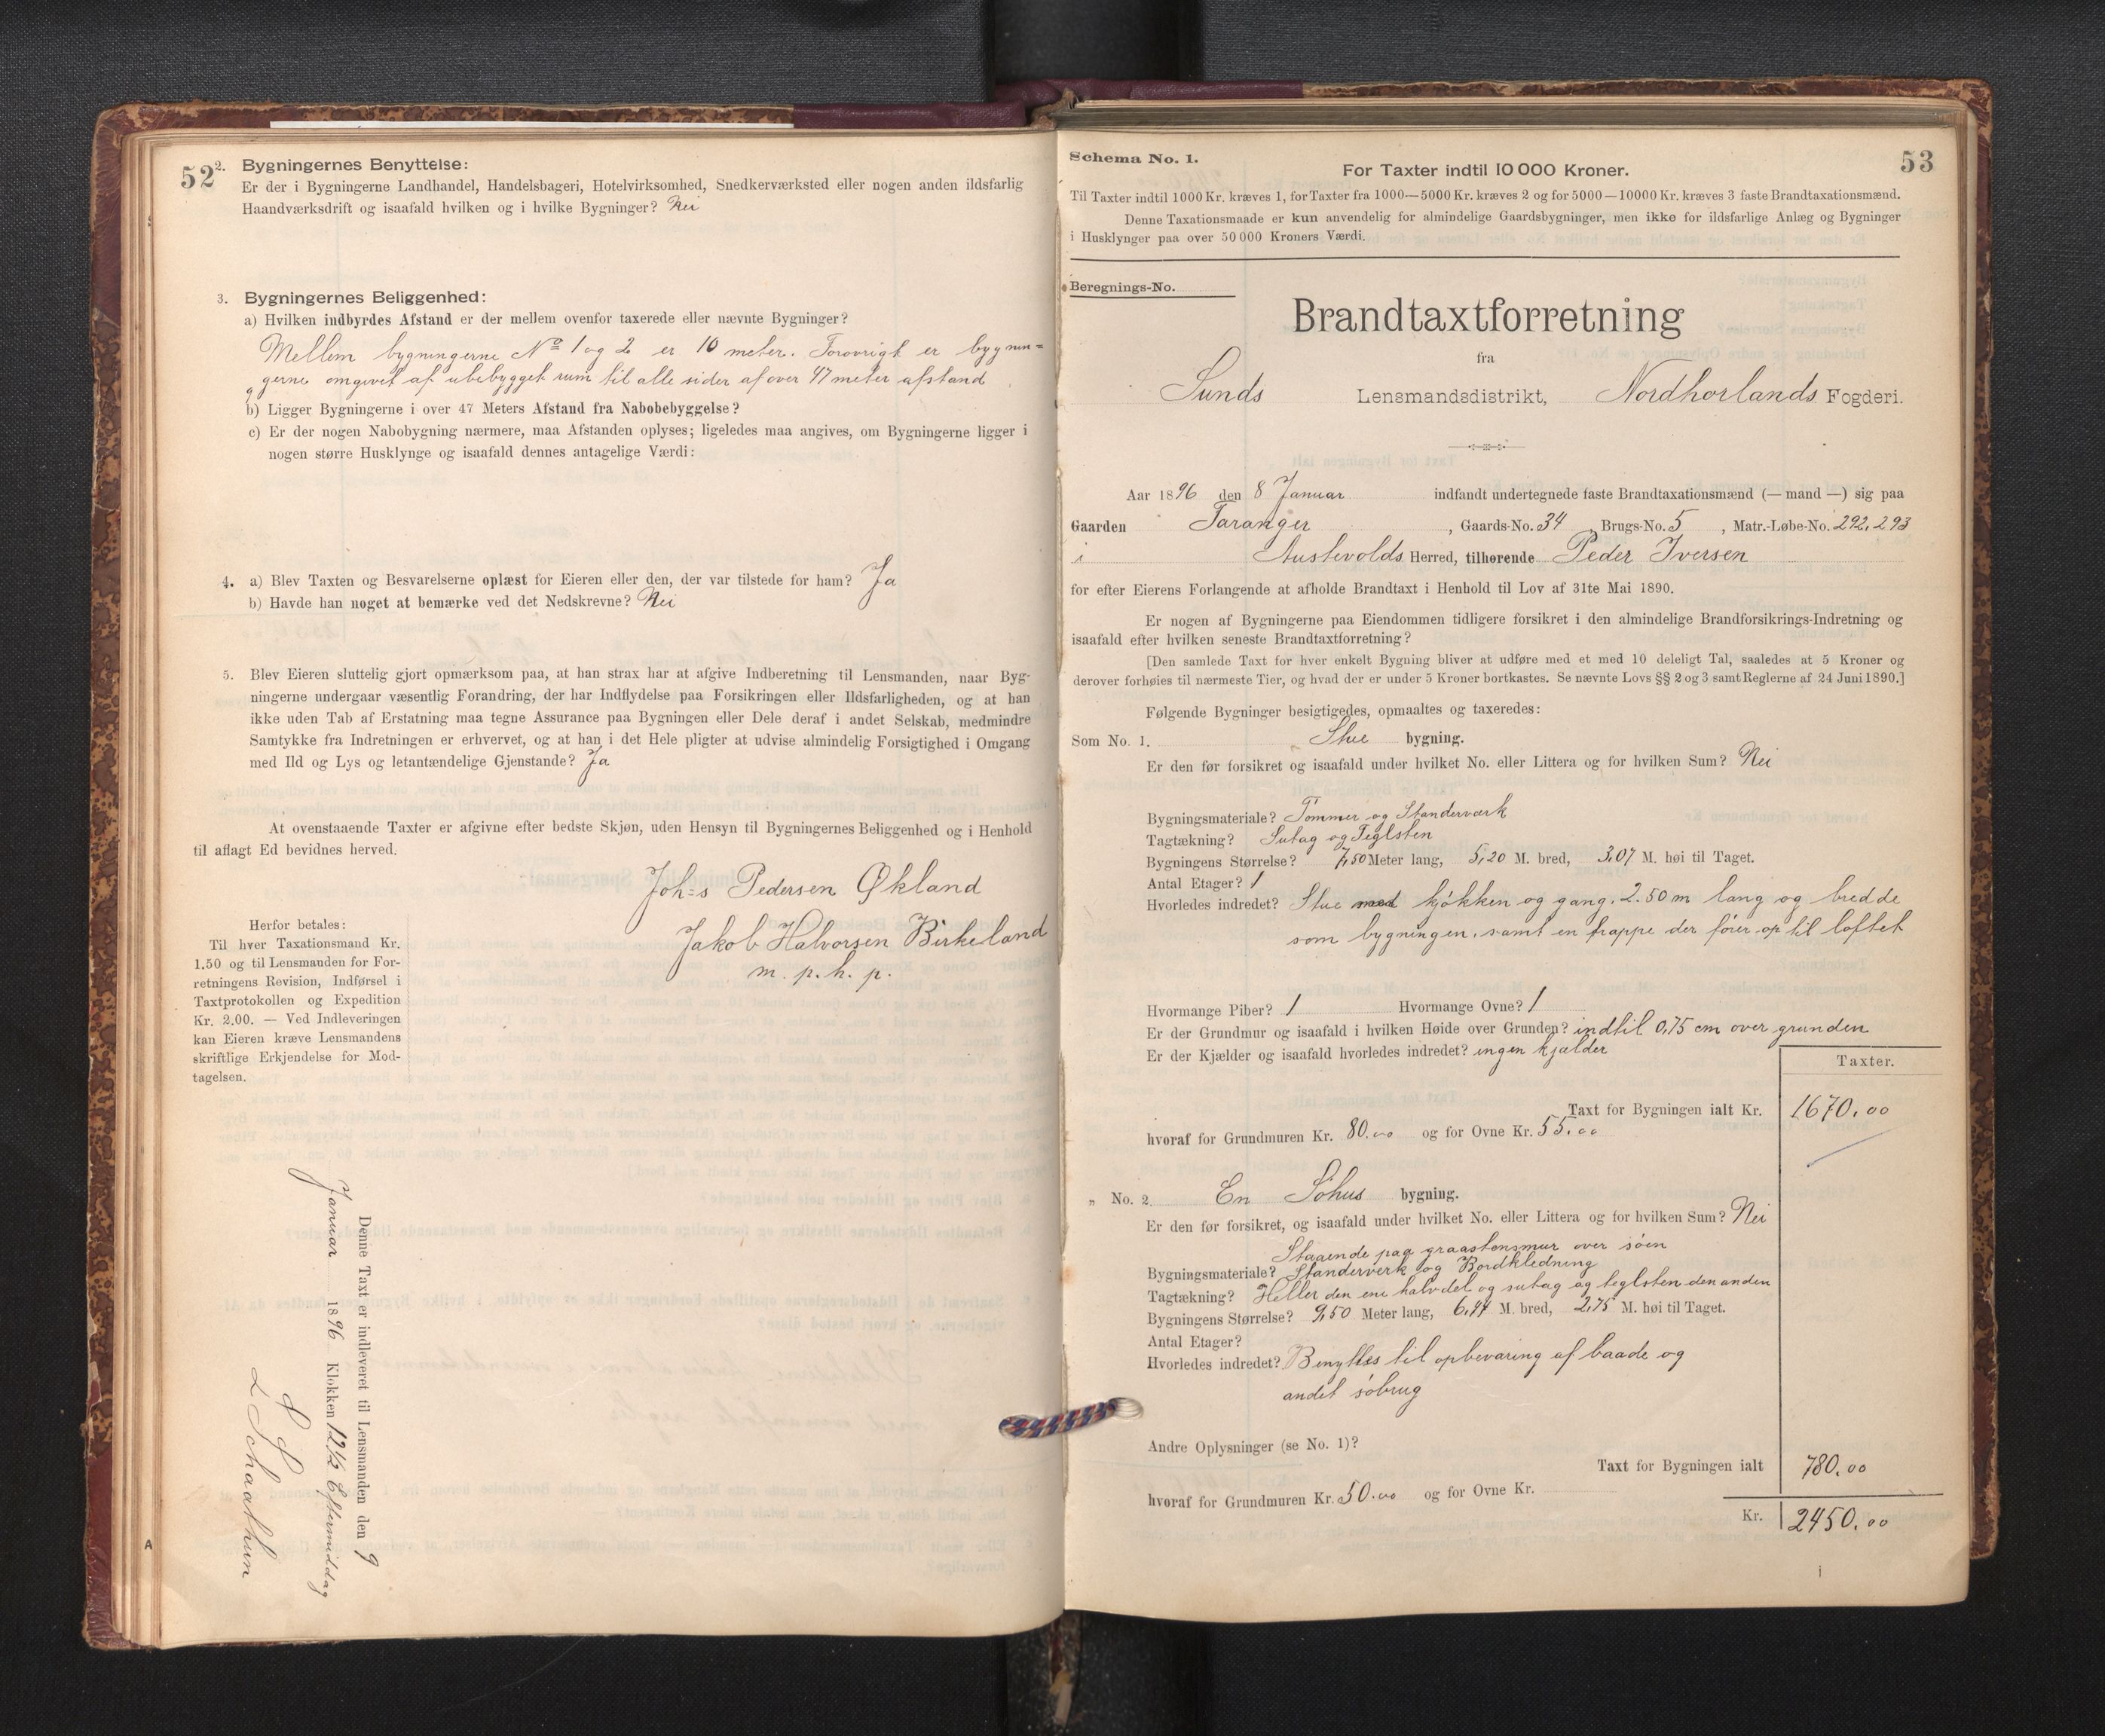 52
2. Bygningernes Benyttelse:
Er der i Bygningerne Landhandel, Handelsbageri, Hotelvirksomhed, Snedkerværksted eller nogen anden ildsfarlig
Haandværksdrift og isaafald hvilken og i hvilke Bygninger? Nei
3. Bygningernes Beliggenhed:
a) Hvilken indbyrdes Afstand er der mellem ovenfor taxerede eller nævnte Bygninger?
Mellem bygningerne No 1 og 2 er 10 meter. Forøvrigt er bygnin=
gerne omgivet af ubebygget rum til alle sider af over 47 meter afstand
b) Ligger Bygningerne i over 47 Meters Afstand fra Nabobebyggelse?
c) Er der nogen Nabobygning nærmere, maa Afstanden oplyses; ligeledes maa angives, om Bygningerne ligger i
nogen større Husklynge og isaafald dennes antagelige Værdi:
4. a) Blev Taxten og Besvarelserne oplæst for Eieren eller den, der var tilstede for ham? Ja
b) Havde han noget at bemærke ved det Nedskrevne? Nei
5. Blev Eieren sluttelig gjort opmærksom paa, at han strax har at afgive Indberetning til Lensmanden, naar Byg-
ningerne undergaar væsentlig Forandring, der har Indflydelse paa Forsikringen eller Ildsfarligheden, og at han
ikke uden Tab af Erstatning maa tegne Assurance paa Bygningen eller Dele deraf i andet Selskab, medmindre
Samtykke fra Indretningen er erhvervet, og at han i det Hele pligter at udvise almindelig Forsigtighed i Omgang
med Ild og Lys og letantændelige Gjenstande? Ja
At ovenstaaende Taxter er afgivne efter bedste Skjøn, uden Hensyn til Bygningernes Beliggenhed og i Henhold
til aflagt Ed bevidnes herved.
Joh=s Pedersen Økland
Jakob Halvorsen Birkeland
m. p. h. p.
Herfor betales:
Til hver Taxationsmand Kr.
1.50 og til Lensmanden for For-
retningens Revision, Indførsel i
Taxtprotokollen og Expedition
Kr. 2.00. — Ved Indleveringen
kan Eieren kræve Lensmandens
skriftlige Erkjendelse for Mod-
tagelsen.
Denne Taxt er indleveret til Lensmanden den 9
Januar 1896 Klokken 12½ Eftermiddag
L Schaathun
A
53
Schema No. 1.
For Taxter indtil 10 000 Kroner.
Til Taxter indtil 1000 Kr. kræves 1, for Taxter fra 1000—5000 Kr. kræves 2 og for 5000—10000 Kr. kræves 3 faste Brandtaxationsmænd.
Denne Taxationsmaade er kun anvendelig for almindelige Gaardsbygninger, men ikke for ildsfarlige Anlæg og Bygninger
i Husklynger paa over 50 000 Kroners Værdi.
Beregnings-No.
Brandtaxtforretning
fra
Sunds Lensmandsdistrikt, Nordhorlands Fogderi.
Aar 1896 den 8 Januar indfandt undertegnede faste Brandtaxationsmænd (— mand —) sig paa
Gaarden Taranger, Gaards-No. 34, Brugs-No. 5, Matr.-Løbe-No. 292, 293
i Austevolds Herred, tilhørende Peder Iversen
for efter Eierens Forlangende at afholde Brandtaxt i Henhold til Lov af 31te Mai 1890.
Er nogen af Bygningerne paa Eiendommen tidligere forsikret i den almindelige Brandforsikrings-Indretning og
isaafald efter hvilken seneste Brandtaxtforretning?
[Den samlede Taxt for hver enkelt Bygning bliver at udføre med et med 10 deleligt Tal, saaledes at 5 Kroner og
derover forhøies til nærmeste Tier, og hvad der er under 5 Kroner bortkastes. Se nævnte Lovs §§ 2 og 3 samt Reglerne af 24 Juni 1890.]
Følgende Bygninger besigtigedes, opmaaltes og taxeredes:
Som No. 1. Stue bygning.
Er den før forsikret og isaafald under hvilket No. eller Littera og for hvilken Sum? Nei
Bygningsmateriale? Tømmer og Standerværk
Tagtækning? Sutag og Teglsten
Bygningens Størrelse? 7,50 Meter lang, 5,20 M. bred, 3,07 M. høi til Taget.
Antal Etager? 1
Hvorledes indredet? Stue med kjøkken og gang. 2.50 m lang og bredde
som bygningen, samt en trappe der fører op til loftet
Hvormange Piber? 1 Hvormange Ovne? 1
Er der Grundmur og isaafald i hvilken Høide over Grunden? indtil 0,75 cm over grunden
Er der Kjælder og isaafald hvorledes indredet? ingen kjælder
Taxter.
Taxt for Bygningen ialt Kr. 1670.00
hvoraf for Grundmuren Kr. 80.00 og for Ovne Kr. 55.00
„ No. 2. En Søhus bygning.
Er den før forsikret, og isaafald under hvilket No. eller Littera og for hvilken Sum? Nei
Staaende paa graastensmur over søen
Bygningsmateriale? Standerverk og Bordkledning
Tagtækning? Heller den ene halvdel og sutag og teglsten den anden
Bygningens Størrelse? 9,50 Meter lang, 6,44 M. bred, 2,75 M. høi til Taget.
Antal Etager?
Hvorledes indredet? Benyttes til opbevaring af baade og
andet søbrug
Andre Oplysninger (se No. 1)?
Taxt for Bygningen ialt 780.00
hvoraf for Grundmuren Kr. 50.00 og for Ovne Kr.
Kr. 2450.00